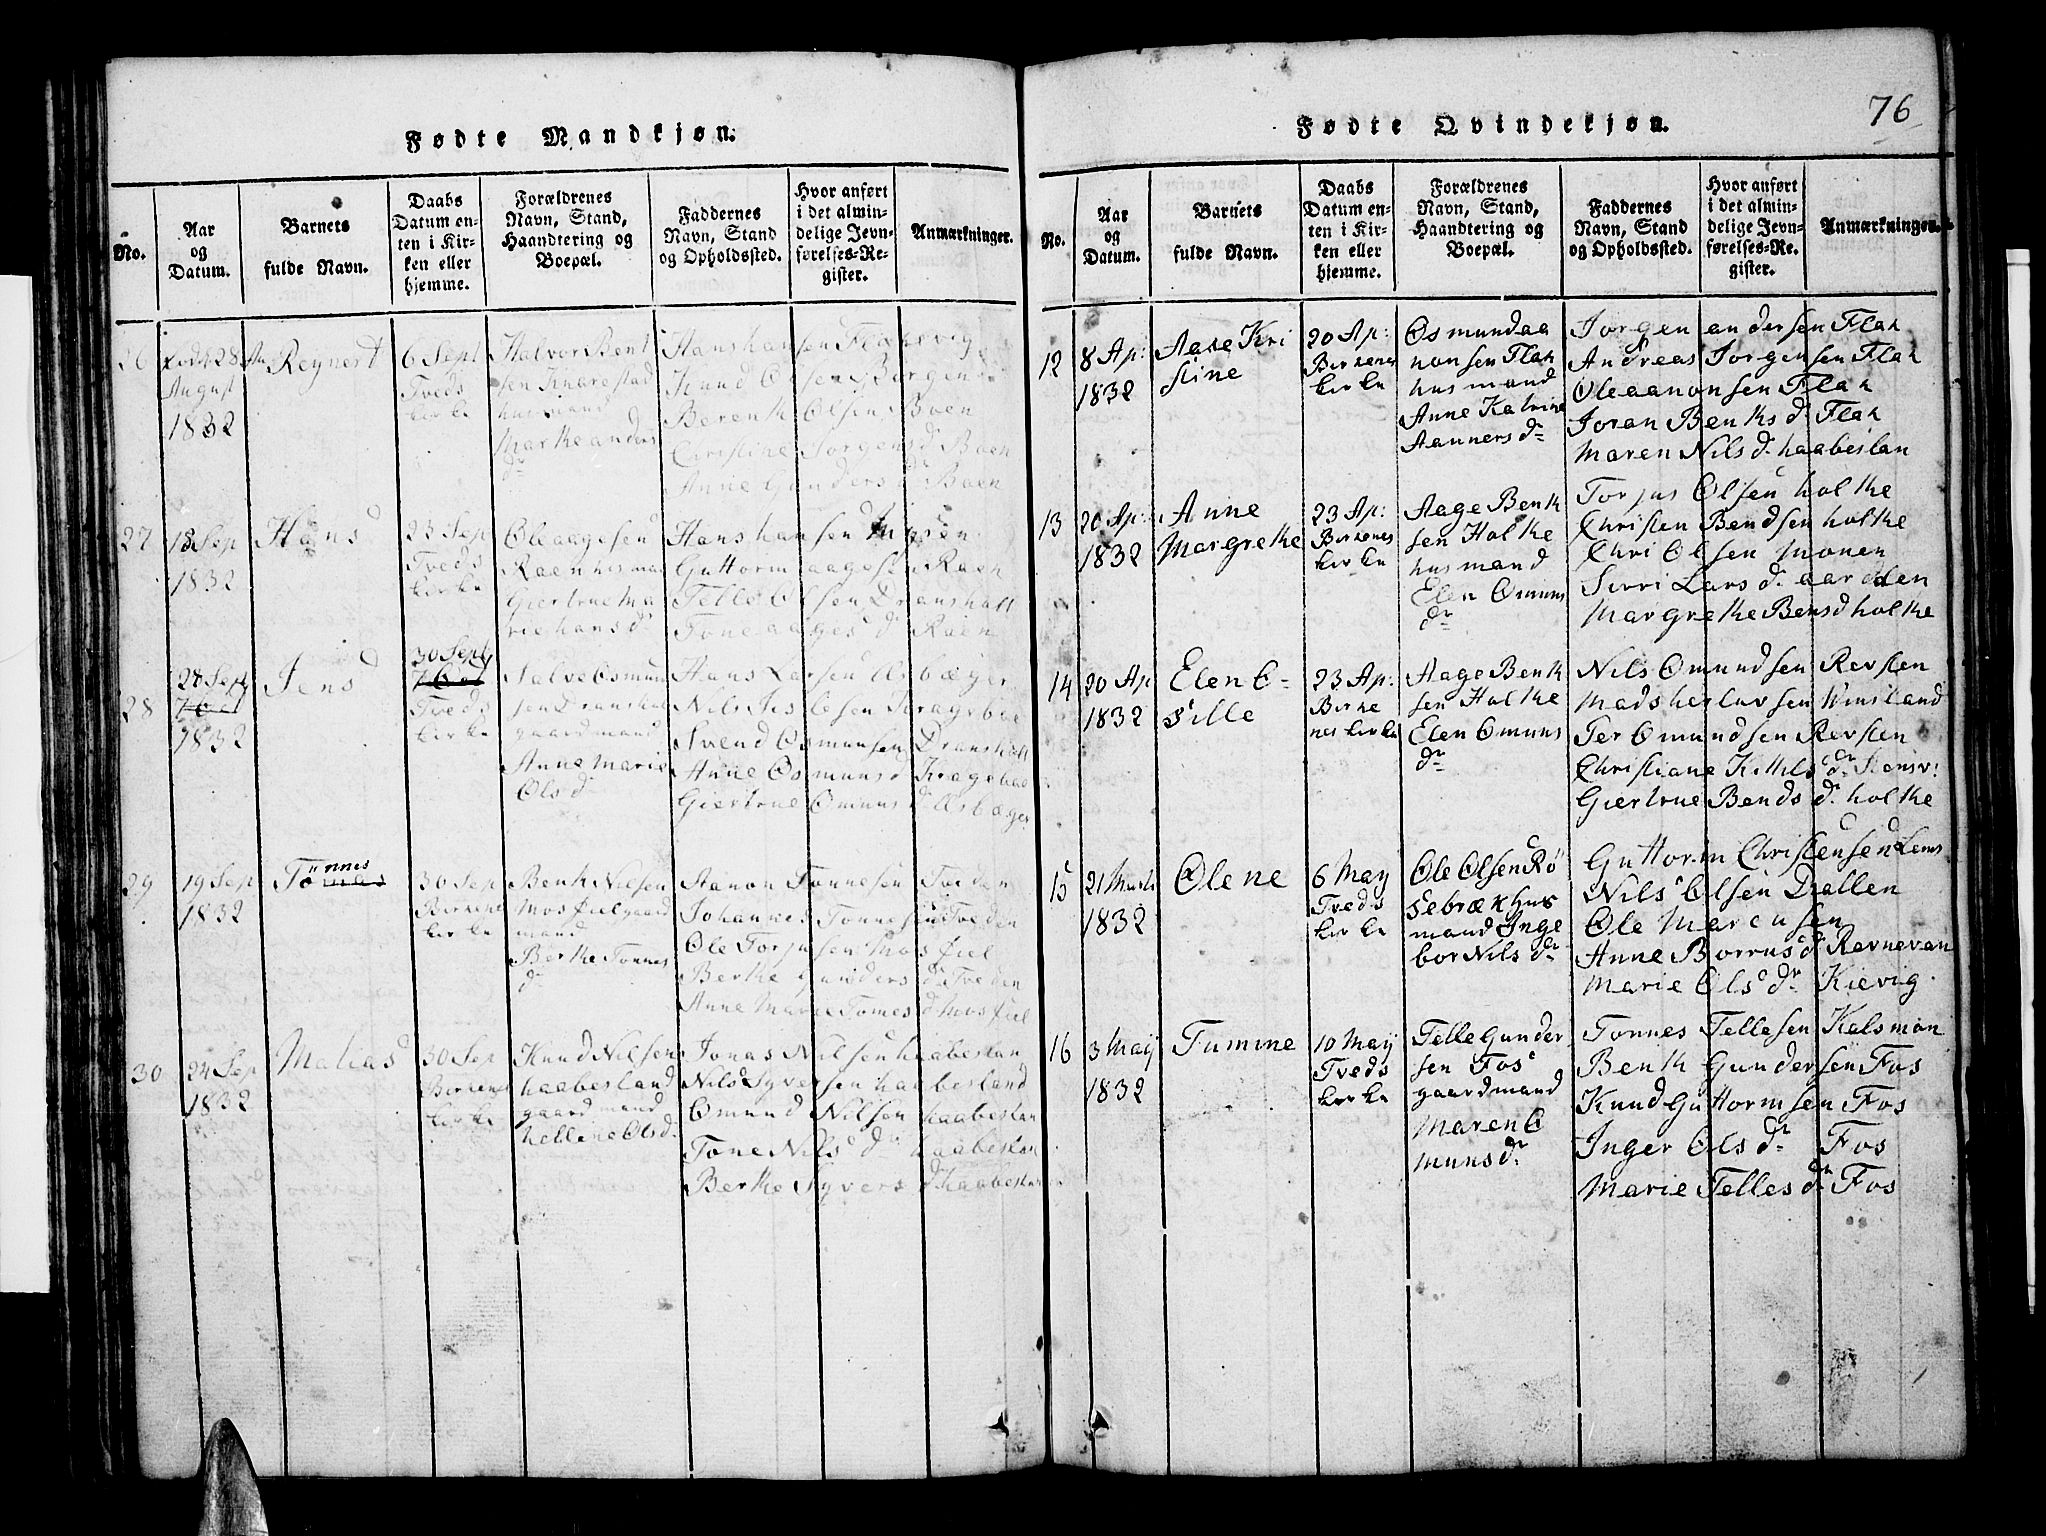 76
Fødte Mandkjøn.
No.
Aar
og
Datum.
Barnets
fulde Navn.
Daabs
Datum en-
ten i Kir-
ken eller
hjemme.
Forældrenes
Navn, Stand,
Haandtering og
Boepæl.
Faddernes
Navn, Stand
og Opholdssted.
Hvor anført
i det almin-
delige Jevn-
førelses-Re-
gister.
Anmærkninger.
26
August
1832
Reynert
6 Sept
Treds
kirke
Halvor Bent
sen Knarestad
husmand
Marthe anders
dr
Hans hansen Flakevig
Knud Olsen Borgen
Berenth Olsen Boen
Christine Jorgensdr Boen
Anne Gundersdr Boen
27
18 Sep
1832
Hans
23 Sep
Treds
kirke
Ole aagesen
Raen husman
Giertrue Ma
rie hansdr
Hans hansen
Guttorm aagesen Raen
Telle Olsen Dransholt
Tone aagesdr Raen
28
28 Sep
1832
Jens
30 Sept
Treds
kirke
Salve Osmun
sen Dranshol
gaardmand
Anne Marie
Olsd
Hans Larsen Esbæger
Nils Nislesen Krageboe
Svend Osmunsen Dransholt
Anne Osmunsd Kragebaa
Giertrue Omunsd Esbæger
29
19 Sep
1832
Tönnes
30 Sep
Birkene
kirke
Benth Nilsen
Mosfiel gaard
mand
Berthe Tonnes
d
Aanon Tonnesen Tveden
Johannes Tonnesen Tveden
Ole Torjusen Mosfiel
Berthe Gundersdr Tveden
Anne Marie Tomesd Mosfiel
30
24 Sep
1832
Matias
30 Sep
Birkenes
kirke
Knud Nilsen
haabesland
gaardmand
helline Olsd
Jonas Nilsen haabeslan
Nils Syversen haabesland
Omund Nilsen haabeslan
Tone Nilsdr haabeslan
Berthe Syversd haabeslan
Fødte Qvindekjøn.
No.
Aar
og
Datum.
Barnets
fulde Navn.
Daabs
Datum en-
ten i Kir-
ken eller
hjemme.
Forældrenes
Navn, Stand,
Haandtering og
Boepæl.
Faddernes
Navn, Stand
og Opholdssted.
Hvor anført
i det almin-
delige Jevn-
førelses-Re-
gister.
Anmærkninger.
12
8 Ap:
1832
Aase Kri
stine
20 Ap:
Birkenes
kirke
Osmund aa
nonsen Flak
husmand
Anne Katrine
Aannersdr
Jorgen andersen Flak
Andreas Jorgensen Flak
Ole aanonsen Flak
Joran Benthsdr Flak
Maren Nilsdr haabeslan
13
20 Ap:
1832
Anne
Margrethe
23 Ap:
Birkenes
kirke
Aage Benth
sen Holthe
husmand
Elen Omuns
dr
Torjus Olsen holthe
Christen Bendsen holthe
Chri Olsen monen
Sirri Larsdr aardalen
Margrethe Bensd holthe
14
20 Ap
1832
Elen O-
sille
23 Ap:
Birke
nes kirke
Aage Benth
sen Holthe
Elen Omuns
dr
Nils Omundsen Revsten
Mads herluvsen Vinsland
Ter Omundsen Revsten
Christiane Kittilsdr
Giertrue Bendsdr holthe
15
21 Marts
1832
Olene
6 May
Treds
kirke
Ole Olsen Rö
sebræk hus
mand Inge
bor Nilsdr
Guttorm Christensen
Nils Olsen Drallen
Ole Marcusen
Anne Borrusdr Ravnevan
Marie Olsdr Kievig
16
3 May
1832
Tumine
10 May
Treds
kirke
Telle Gunder
sen Fos
gaardmand
Maren O
munsdr
Tonnes Tellesen Kalsman
Benth Gundersen Fos
Knud Guttormsen Fos
Inger Olsdr Fos
Marie Tellesdr Fos